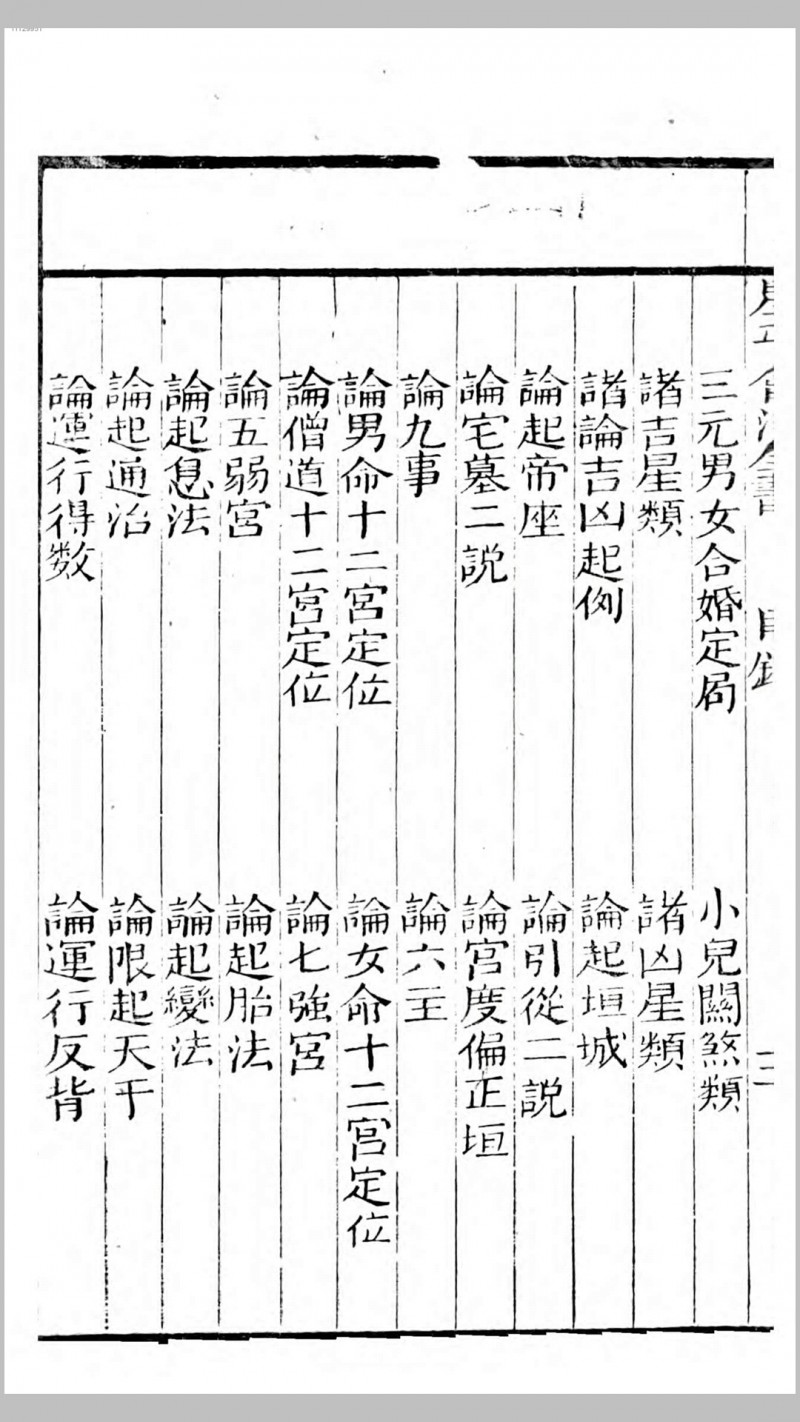 三元男女合婚定局 小兒關煞類
諸吉星類 諸凶星類
諸論吉凶起例 論起垣城
論起帝座 論引從二説
論宅墓二説 論宮度偏正垣
論九事 論六主
論男命十二宮定位 論女命十二宮定位
論僧道十二宮定位 論七強宮
論五弱宮 論起胎法
論起息法 論起變法
論起通治 論限起天干
論運行得数 論運行反背